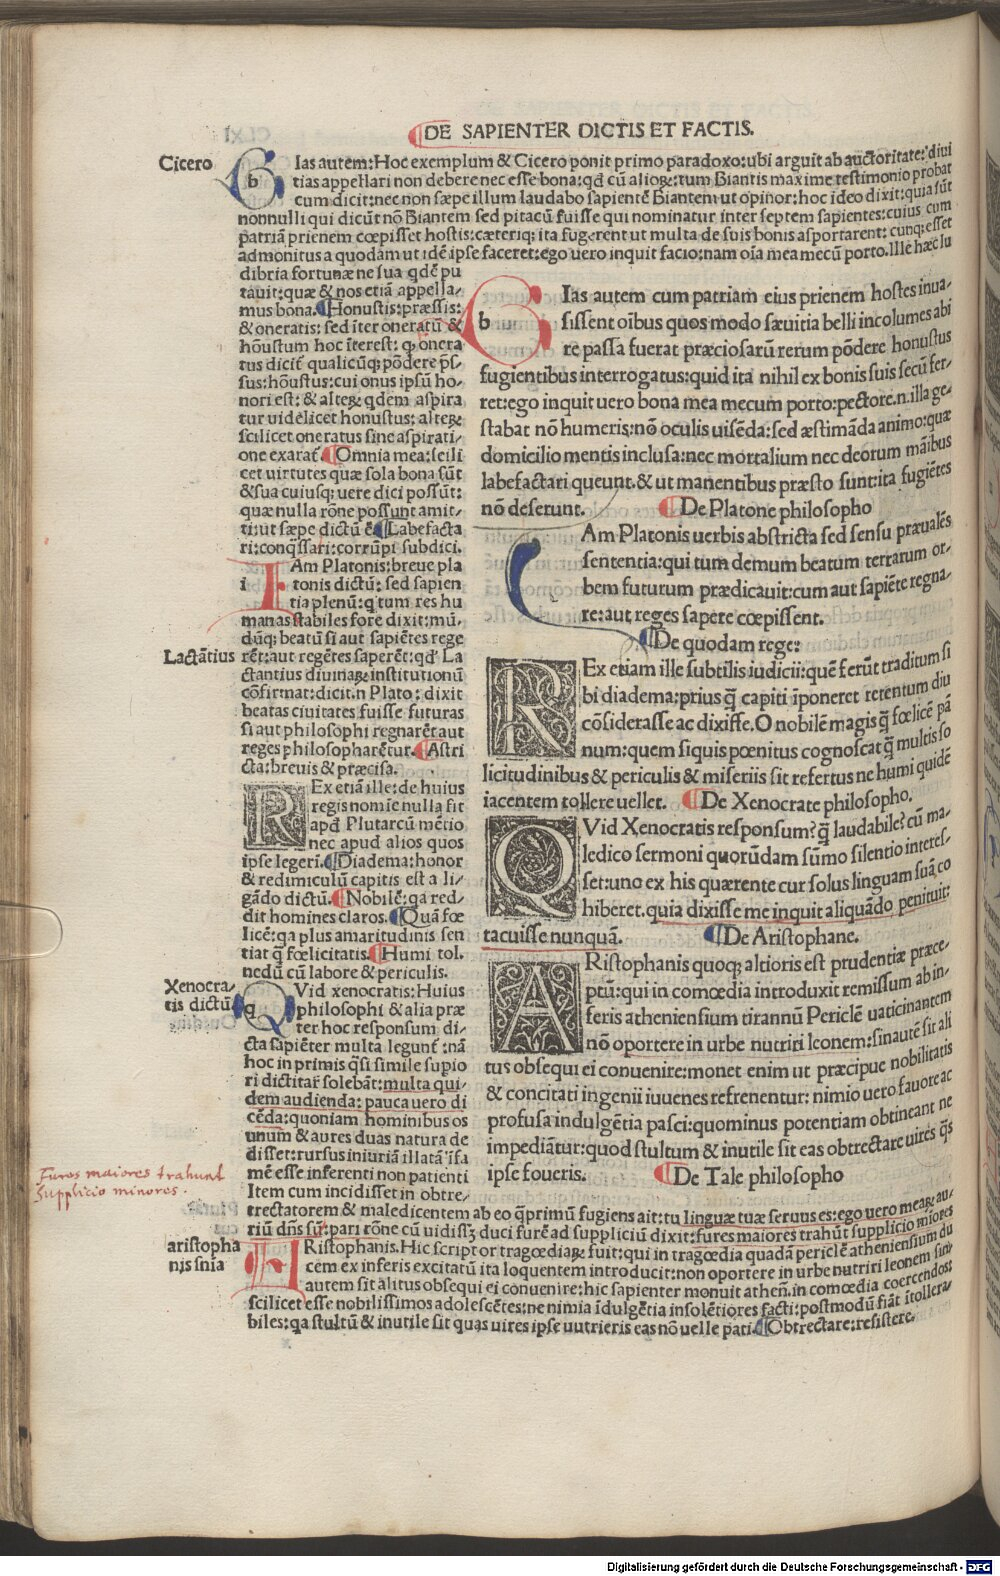 DE SAPIENTER DICTIS ET FACTIS.
Cicero
Ias autem: Hoc exemplum & Cicero ponit primo paradoxo: ubi arguit ab auctoritate: diui
b
tias appellari non debere nec esse bona: qd cū alioꝝ: tum Biantis maxime testimonio probat
cum dicit: nec non sæpe illum laudabo sapientē Biantem ut opinor: hoc ideo dixit: quia sūt
nonnulli qui dicūt nō Biantem sed pitacū fuisse qui nominatur inter septem sapientes: cuius cum
patriā prienem cœpisset hostis: cæteriq; ita fugerent ut multa de suis bonis asportarent: cunq; esset
admonitus a quodam ut idē ipse faceret: ego uero inquit facio: nam oīa mea mecū porto. Ille hæc lu
dibria fortunæ ne sua qdē pu
tauit: quæ & nos etiā appella-
mus bona. Honustis: præssis:
& oneratis: sed īter oneratū &
hōustum hoc īterest: q; onera
tus dicit̄ qualicūq; pōdere p̄s-
sus: hōustus: cui onus ipsū ho-
nori est: & alteꝝ qdem aspira
tur uidelicet honustus: alteꝝ
scilicet oneratus sine aspirati-
one exarat̄. Omnia mea: scili
cet uirtutes quæ sola bona sūt
& sua cuiusq; uere dici possūt:
quæ nulla rōne possunt amit-
ti: ut sæpe dictū ē Labefacta
ri: conq̄ssari: corrūpi subdici.
Am Platonis: breue pla
i
tonis dictū: sed sapien
tia plenū: q tum res hu
manas stabiles fore dixit: mū-
dūq; beatū si aut sapiētes rege
Lactātius
rēt: aut regētes saperēt: qd La
ctantius diuinaꝝ institutionū
cōfirmat: dicit. n Plato: dixit
beatas ciuitates fuisse futuras
si aut philosophi regnarēt aut
reges philosopharētur. Astri
cta: breuis & præcisa.
REx etiā ille: de huius
regis nomīe nulla fit
apd Plutarcū mētio
nec apud alios quos
ipse legeri. Diadema: honor
& redimiculū capitis est a li-
gādo dictū. Nobilē: qa red-
dit homines claros. Quā fœ
licē: qa plus amaritudinis sen
tiat q̄ fœlicitatis. Humi tol.
nedū cū labore & periculis.
Xenocra-
tis dictū
Vid xenocratis: Huius
q
philosophi & alia præ
ter hoc responsum di-
cta sapiēter multa legunt̄: nā
hoc in primis q̄si simile supio
ri dictitar̄ solebāt: multa qui-
dem audienda: pauca uero di
cēda: quoniam hominibus os
unum & aures duas natura de
disset: rursus iniuriā illatā īfa
mē esse inferenti non patienti
Item cum incidisset in obtre-
Fures maiores trahunt
supplicio minores.
trectatorem & maledicentem ab eo q̄primū fugiens ait: tu linguæ tuæ seruus es: ego uero meaꝝ au-
riū dn̄s sū: pari rōne cū uidissꝫ duci furē ad suppliciū dixit: fures maiores trahūt supplicio miores
aristopha
nis snia
Ristophanis. Hic scriptor tragœdiaꝝ fuit: qui in tragœdia quadā periclē atheniensium du
cem ex inferis excitatū ita loquentem introducit: non oportere in urbe nutriri leonem sin
autem sit alitus obsequi ei conuenire: hic sapienter monuit atheñ. in comœdia coercendos:
scilicet esse nobilissimos adolescētes: ne nimia īdulgētia insolētiores facti: postmodū fiāt ītollera
biles: qa stultū & inutile sit quas uires ipse nutrieris eas nō uelle pati. Obtrectare: resistere.
Ias autem cum patriam eius prienem hostes inua-
b
sissent oībus quos modo sæuitia belli incolumes abi
re passa fuerat præciosarū rerum pōdere honustus
fugientibus interrogatus: quid ita nihil ex bonis suis secū fer-
ret: ego inquit uero bona mea mecum porto: pectore. n. illa ge-
stabat nō humeris: nō oculis uisēda: sed æstimāda animo: quæ
domicilio mentis inclusa: nec mortalium nec deorum māibus
labefactari queunt. & ut manentibus præsto sunt: ita fugiētes
nō deserunt. De Platone philosopho
Am Platonis uerbis abstricta sed sensu præualēs
sententia: qui tum demum beatum terrarum or-
bem futurum prædicauit: cum aut sapiēte regna-
re: aut reges sapere cœpissent.
De quodam rege:
REx etiam ille subtilis iudicii: quē ferūt traditum si
bi diadema: prius q̄ capiti īponeret retentum diu
cōsiderasse ac dixisse. O nobilē magis q̄ fœlicē pā
num: quem siquis pœnitus cognoscat q̄ multis so
licitudinibus & periculis & miseriis sit refertus ne humi quidē
iacentem tollere uellet. De Xenocrate philosopho.
QVid Xenocratis responsum? q̄ laudabile? cū ma-
ledico sermoni quorūdam sūmo silentio interes-
set: uno ex his quærente cur solus linguam suā co
hiberet. quia dixisse me inquit aliquādo penituit:
tacuisse nunquā. De Aristophane.
ARistophanis quoq; altioris est prudentiæ præce-
ptū: qui in comœdia introduxit remissum ab in-
feris atheniensium tirannū Periclē uaticinantem
nō oportere in urbe nutriri leonem: sinautē sit ali
tus obsequi ei conuenire: monet enim ut præcipue nobilitatis
& concitati ingenii iuuenes refrenentur: nimio uero fauore ac
profusa indulgētia pasci: quominus potentiam obtineant ne
impediātur: quod stultum & inutile sit eas obtrectare uires q̄s
ipse foueris. De Tale philosopho
Digitalisierung gefördert durch die Deutsche Forschungsgemeinschaft - DFG